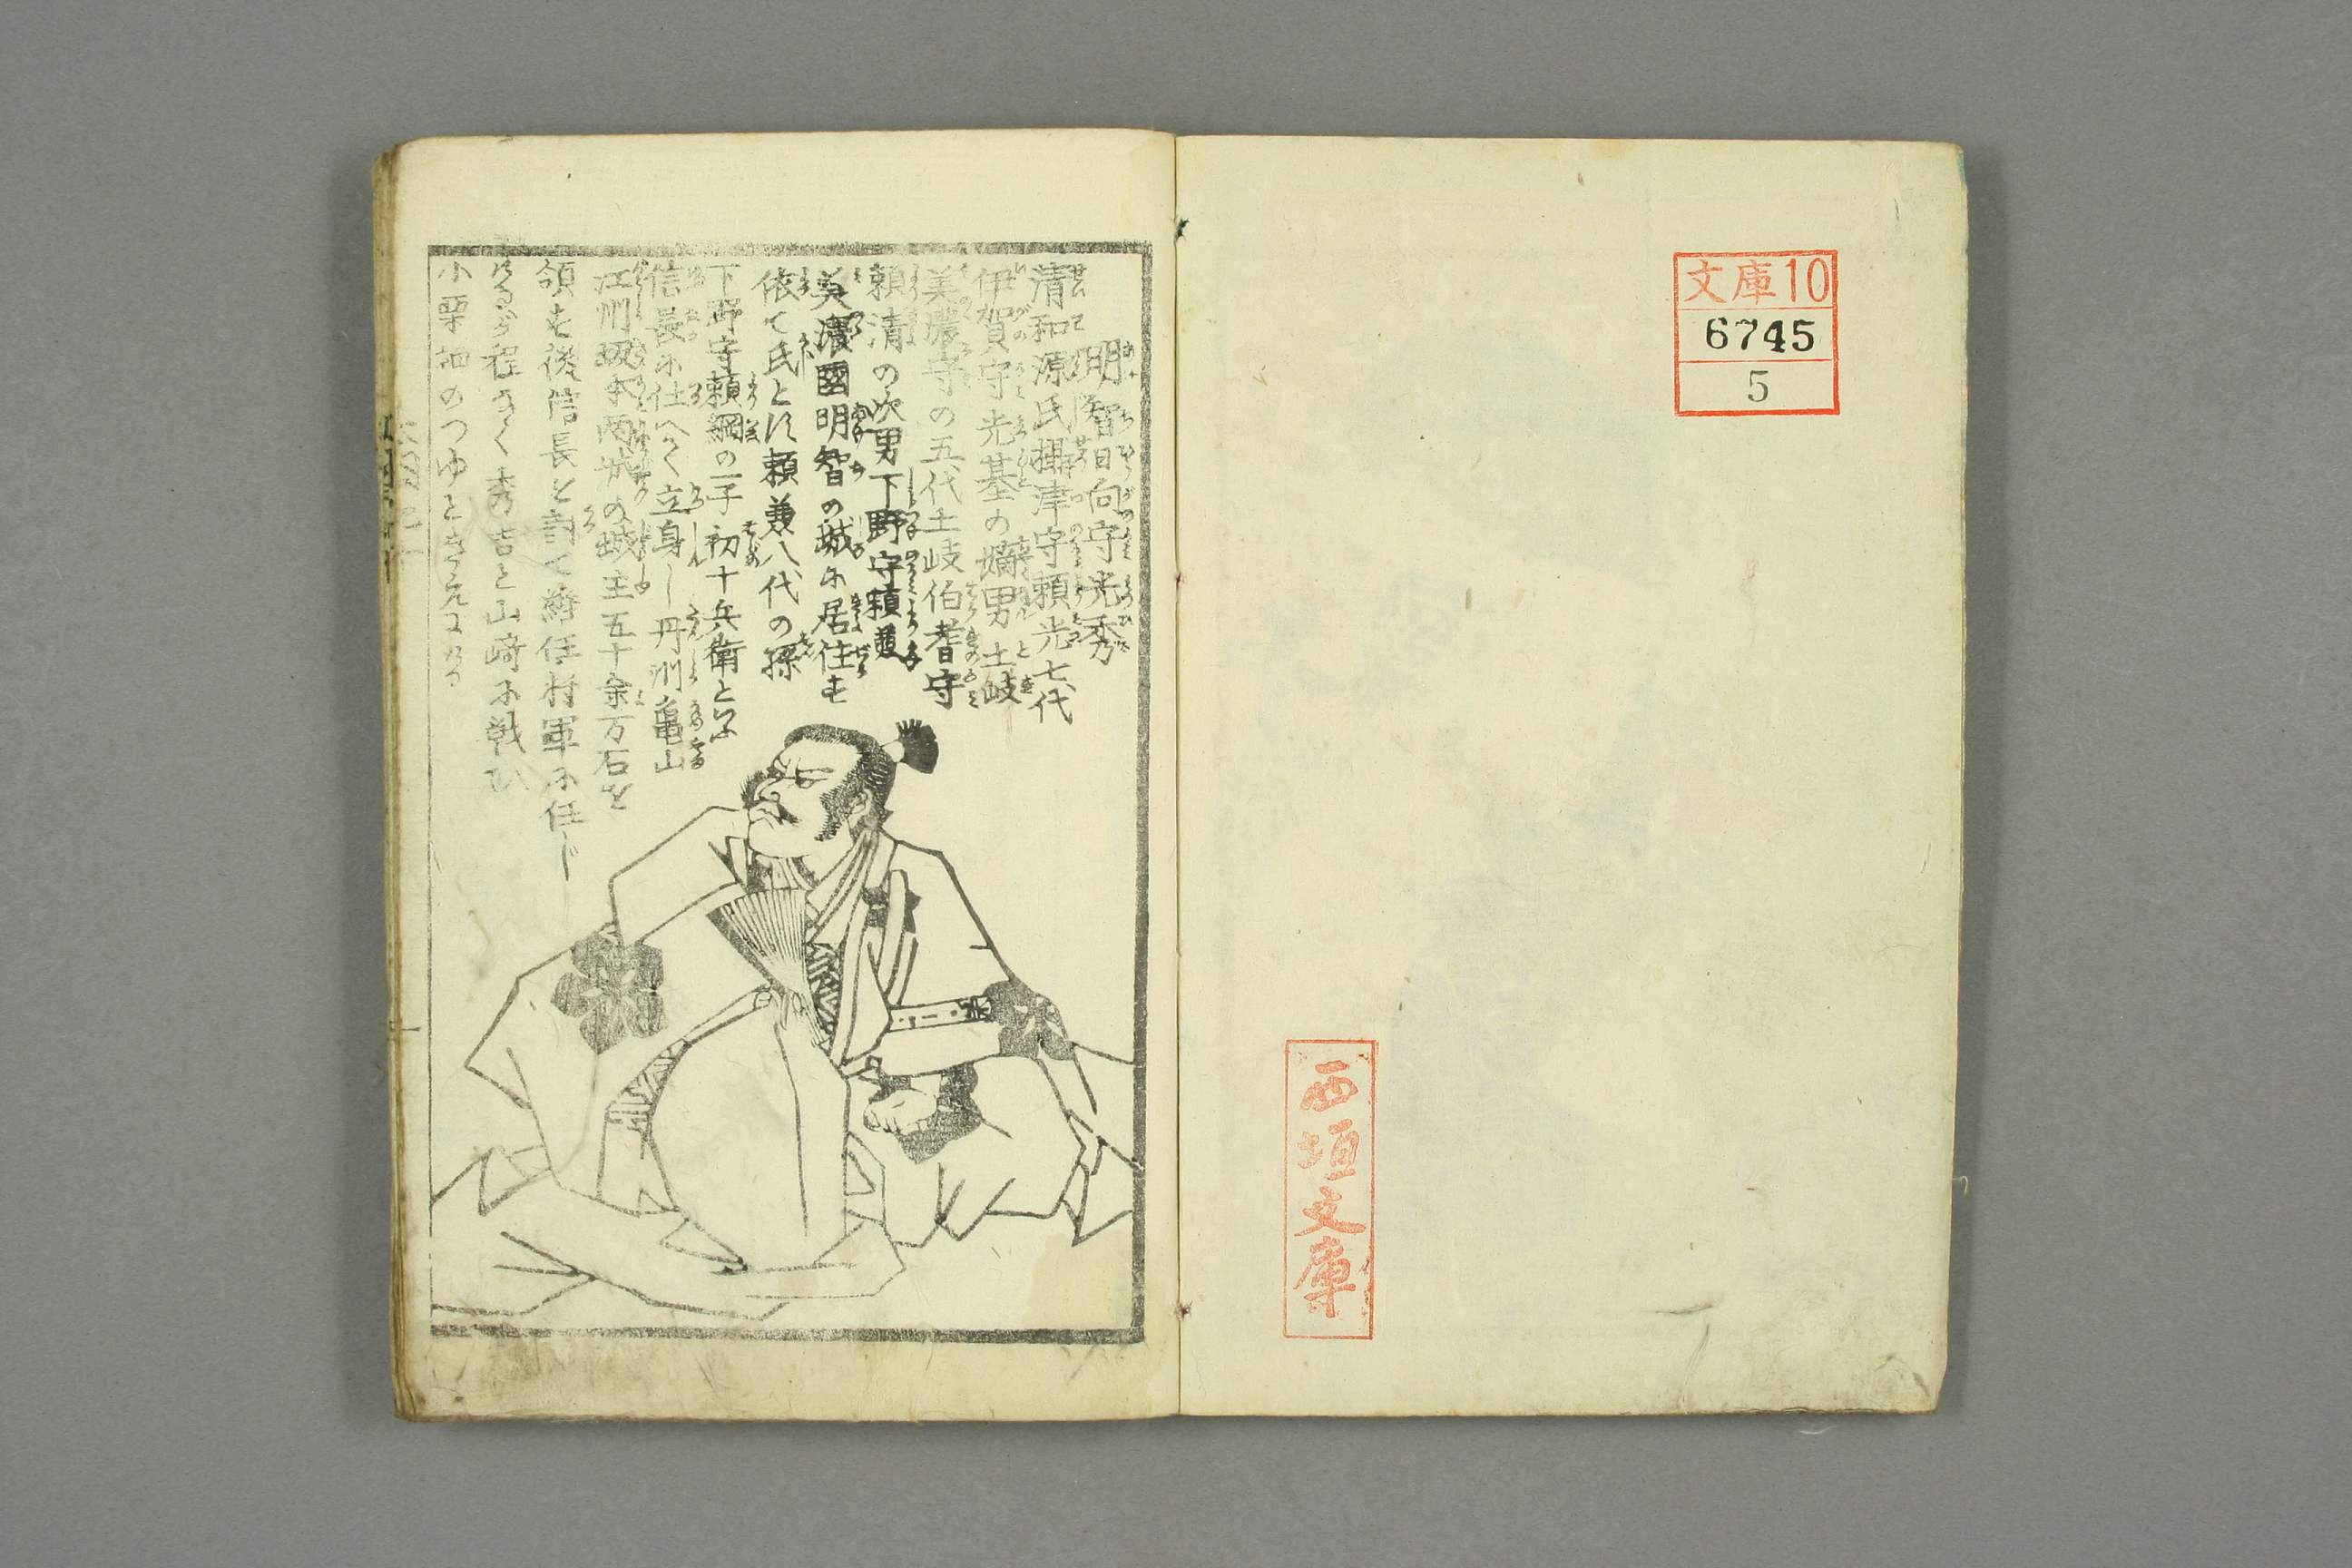 文庫10
6745
5
西垣文庫
明智日向守光秀
清和源氏摂津守頼光七代
伊賀守光基の嫡男土岐
美濃守の五代土岐伯耆守
頼清の次男下野守頼
美濃國明智の城に居住す
依て氏とす頼兼八代の孫
下野守頼綱の一子初十兵衛といふ
信長に仕へて立身し丹州亀山
江州坂本両城の城主五十余万石を
領す後信長を討て将軍に任じ
程なく秀吉と山﨑に戦ひ
小栗栖のつゆときえ